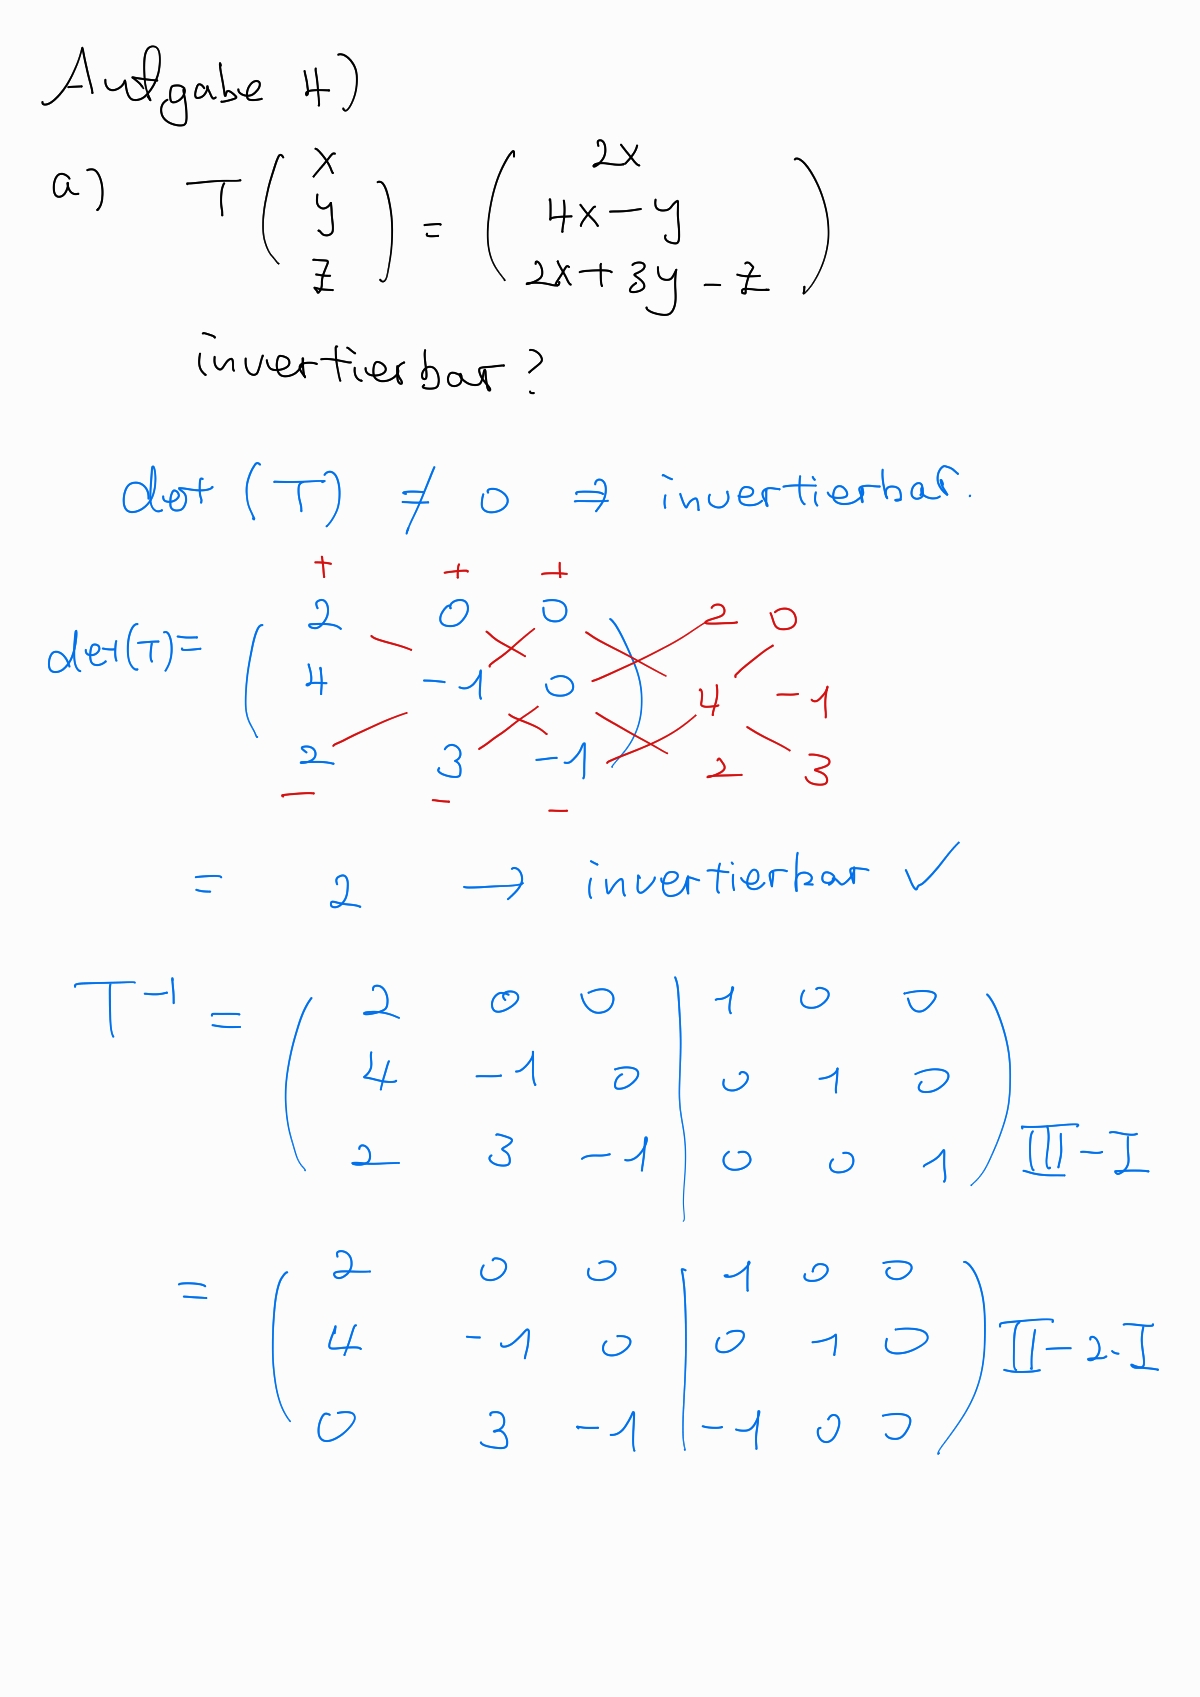 Aufgabe 4)
a) T ( x y z ) = ( 2x
4x - y
2x + 3y - z )
invertierbar?
det (T) ≠ 0 ⇒ invertierbar.
+ + +
2 0 0 2 0
det(T) = ( 4 -1 0 ) 4 -1
2 3 -1 2 3
- - -
= 2 → invertierbar ✓
T⁻¹ = ( 2 0 0 | 1 0 0
4 -1 0 | 0 1 0
2 3 -1 | 0 0 1 ) III - I
= ( 2 0 0 | 1 0 0
4 -1 0 | 0 1 0 ) II - 2·I
0 3 -1 | -1 0 0